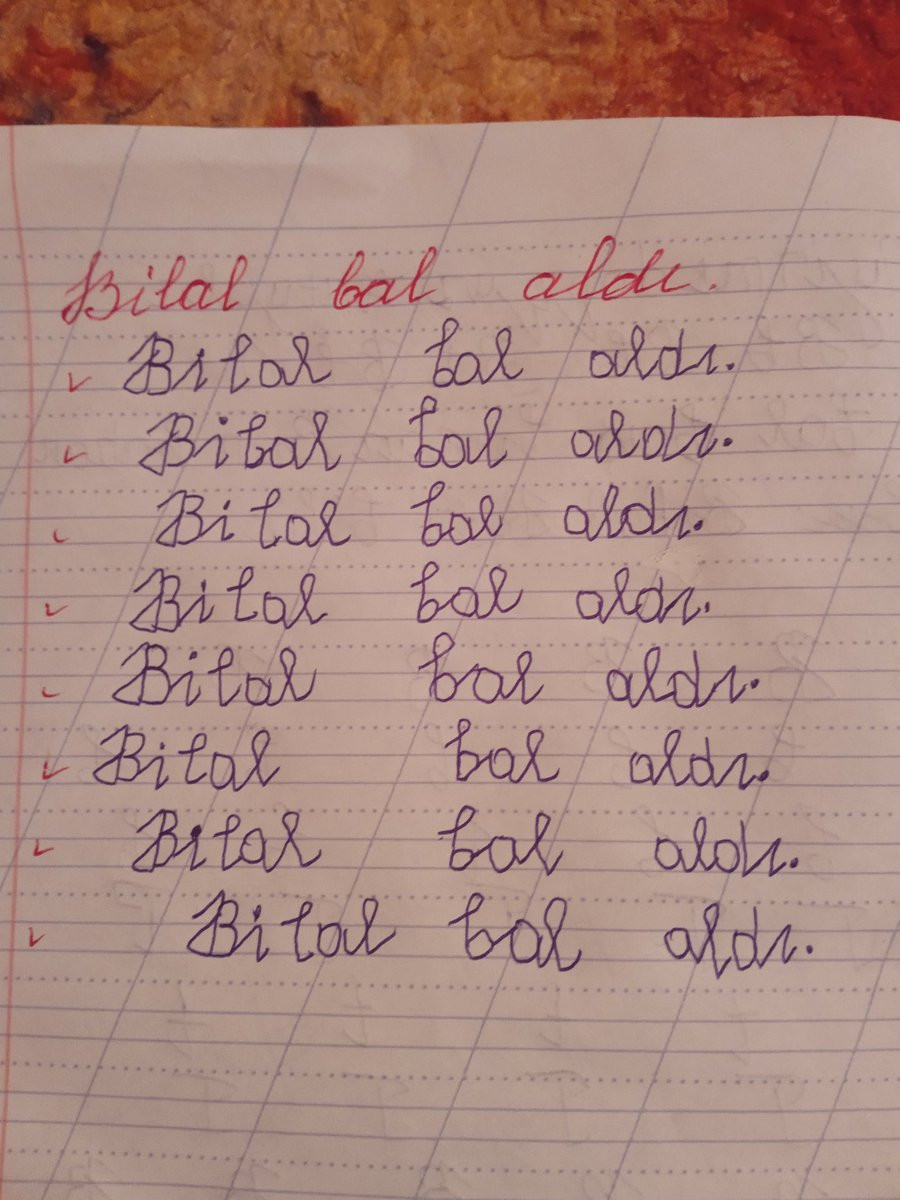 Bilal bal aldı.
Bilal bal aldı.
Bilal bal aldı.
Bilal bal aldı.
Bilal bal aldı.
Bilal bal aldı.
Bilal bal aldı.
Bilal bal aldı.
Bilal bal aldı.